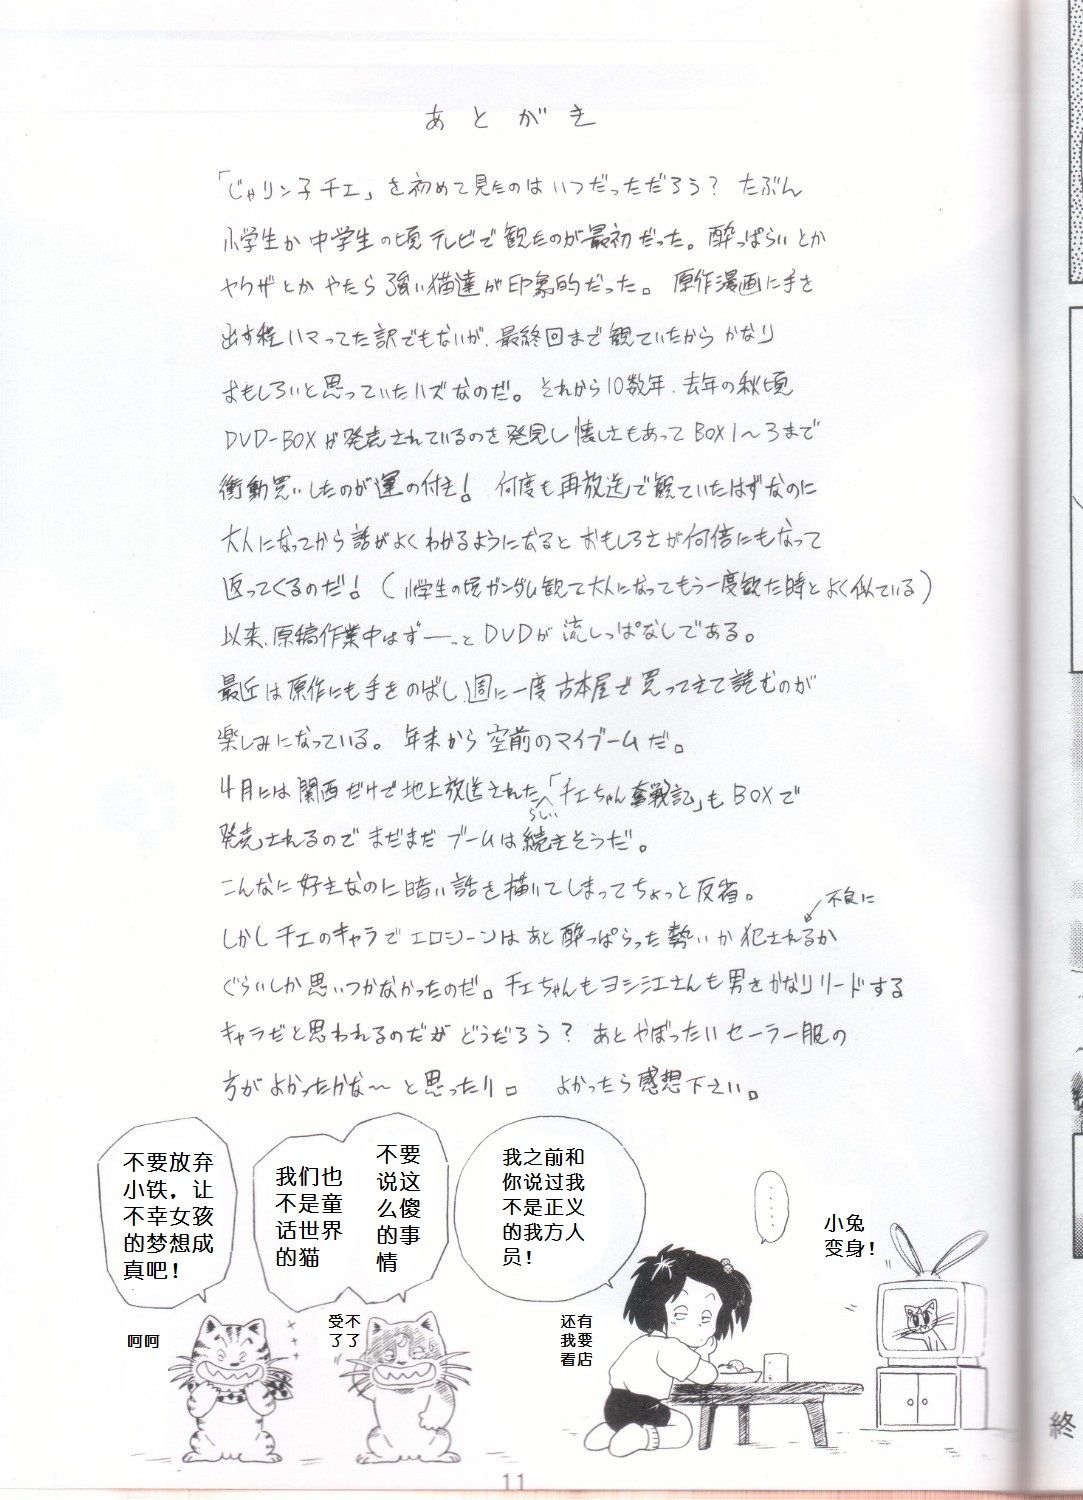 あとがき
「じゃリン子チエ」を初めて見たのはいつだっただろう？ たぶん
小学生か中学生の頃テレビで観たのが最初だった。酔っぱらいとか
ヤクザとかやたら強い猫達が印象的だった。原作漫画に手を
出す程ハマってた訳でもないが、最終回まで観ていたからかなり
おもしろいと思っていたハズなのだ。それから10数年、去年の秋頃
DVD-BOXが発売されているのを発見し懐しさもあってBOX1～3まで
衝動買いしたのが運の付き！ 何度も再放送で観ていたはずなのに
大人になってから話がよくわかるようになるとおもしろさが何倍にもなって
返ってくるのだ！（小学生の頃ガンダム観て大人になってもう一度観た時とよく似ている）
以来、原稿作業中はずーっとDVDが流しっぱなしである。
最近は原作にも手をのばし、週に一度古本屋で買ってきて読むのが
楽しみになっている。年末から空前のマイブームだ。
4月には関西だけで地上放送された「チエちゃん奮戦記」もBOXで
らしい
発売されるのでまだまだブームは続きそうだ。
こんなに好きなのに暗い話を描いてしまってちょっと反省。
不良に
しかしチエのキャラでエロシーンはあと酔っぱらった勢いか犯されるか
ぐらいしか思いつかなかったのだ。チエちゃんもヨシ江さんも男をかなりリードする
キャラだと思われるのだがどうだろう？ あとやぼったいセーラー服の
方がよかったかな～と思ったり。 よかったら感想下さい。
不要放弃
小铁，让
不幸女孩
的梦想成
真吧！
我们也
不是童
话世界
的猫
不要
说这
么傻
的事
情
我之前和
你说过我
不是正义
的我方人
员！
……
小兔
变身！
呵呵
受不
了了
还有
我要
看店
11
終